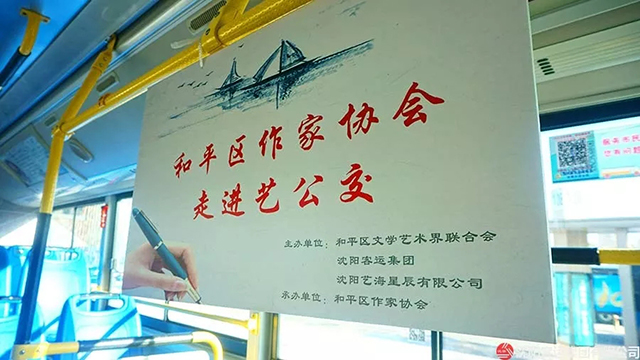 和平区作家协会
走进艺公交
主办单位：和平区文学艺术界联合会
沈阳客运集团
沈阳艺海星辰有限公司
承办单位：和平区作家协会